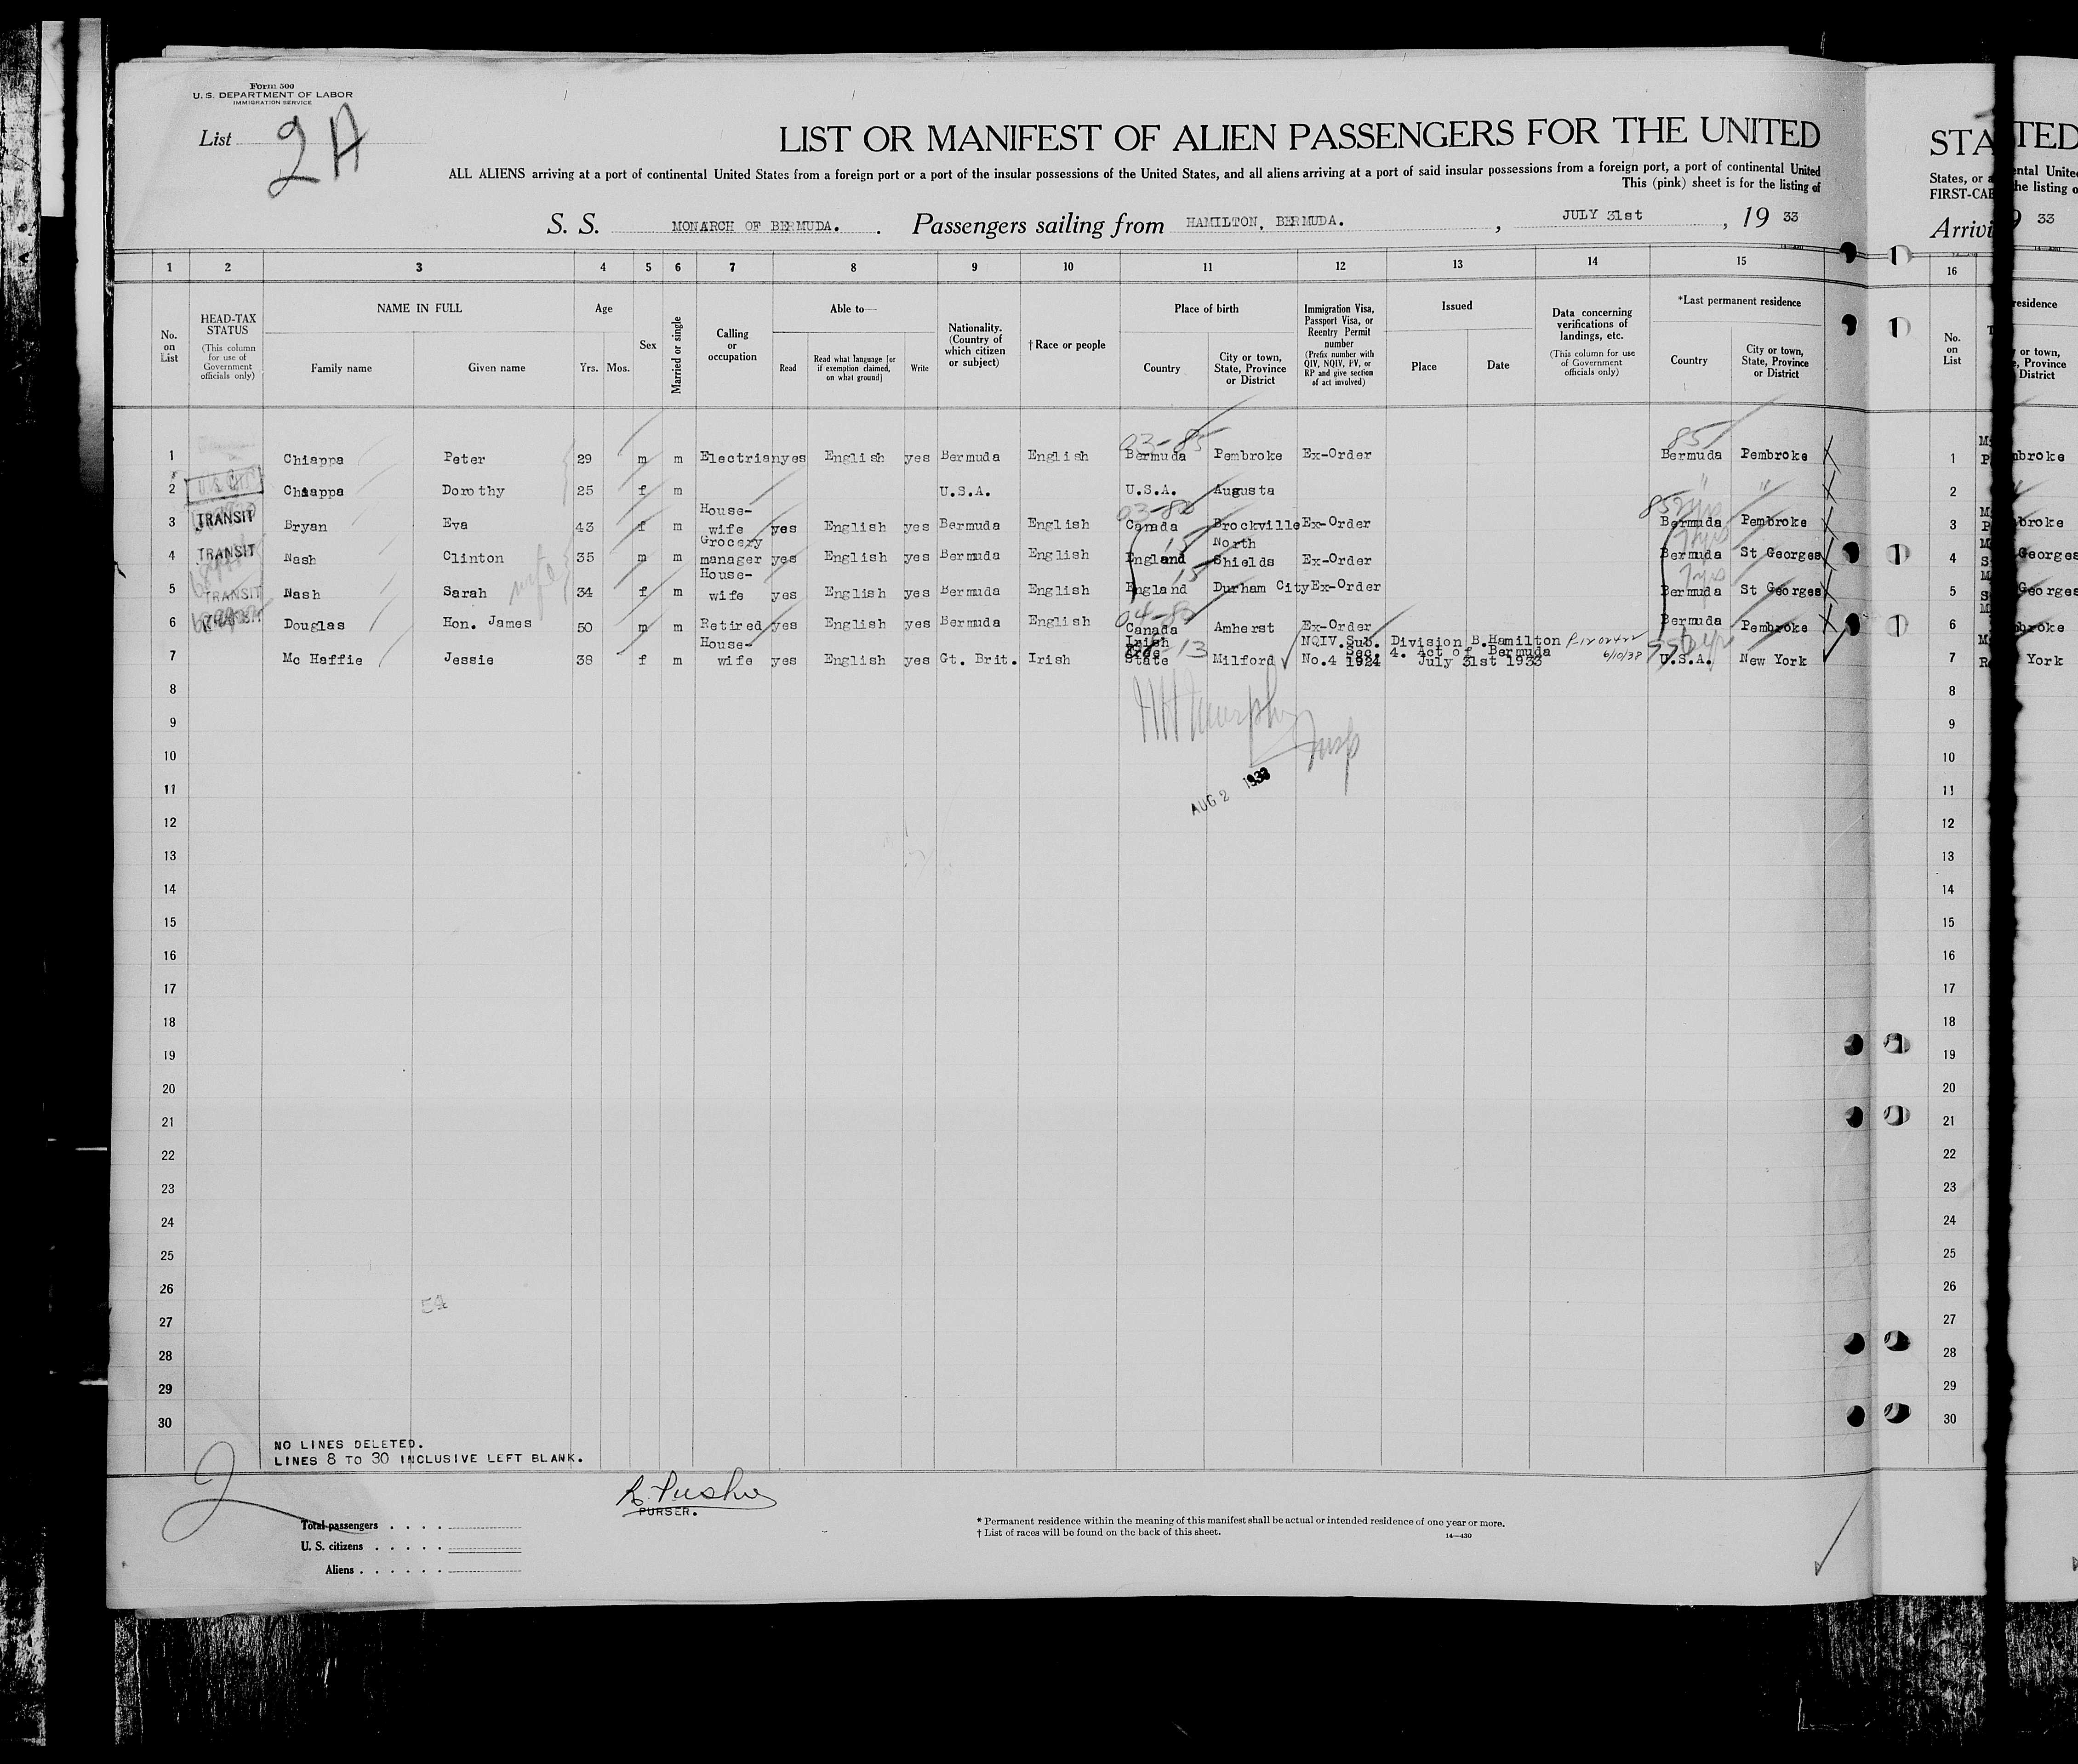 Form 500
U. S. DEPARTMENT OF LABOR
IMMIGRATION SERVICE
List 2A
LIST OR MANIFEST OF ALIEN PASSENGERS FOR THE UNITED
ALL ALIENS arriving at a port of continental United States from a foreign port or a port of the insular possessions of the United States, and all aliens arriving at a port of said insular possessions from a foreign port, a port of continental United
This (pink) sheet is for the listing of
S. S. MONARCH OF BERMUDA. Passengers sailing from HAMILTON, BERMUDA. , JULY 31st , 19 33
1 2 3 4 5 6 7 8 9 10 11 12 13 14 15
No. on List
HEAD-TAX STATUS
(This column for use of Government officials only)
NAME IN FULL
Family name Given name
Age
Yrs. Mos.
Sex
Married or single
Calling or occupation
Able to—
Read
Read what language [or if exemption claimed, on what ground]
Write
Nationality. (Country of which citizen or subject)
† Race or people
Place of birth
Country
City or town, State, Province or District
Immigration Visa, Passport Visa, or Reentry Permit number
(Prefix number with QIV, NQIV, PV, or RP and give section of act involved)
Issued
Place Date
Data concerning verifications of landings, etc.
(This column for use of Government officials only)
*Last permanent residence
Country
City or town, State, Province or District
03-85 85
1 Chiappa Peter 29 m m Electrian yes English yes Bermuda English Bermuda Pembroke Ex-Order Bermuda Pembroke
2 Chiappa Dorothy 25 f m U.S.A. U.S.A. Augusta " "
3 TRANSIT Bryan Eva 43 f m House-wife yes English yes Bermuda English Canada Brockville Ex-Order Bermuda Pembroke
4 TRANSIT Nash Clinton 35 m m Grocery manager yes English yes Bermuda English England North Shields Ex-Order Bermuda St Georges
5 TRANSIT Nash Sarah wife 34 f m House-wife yes English yes Bermuda English England Durham City Ex-Order Bermuda St Georges
6 Douglas Hon. James 50 m m Retired yes English yes Bermuda English Canada Amherst Ex-Order Bermuda Pembroke
7 Mc Haffie Jessie 38 f m House-wife yes English yes Gt. Brit. Irish Irish Free State Milford NQIV.Sub. Division B. Hamilton
No.4 Sec. 4. Act of 1924 Bermuda July 31st 1933 6/10/38 U.S.A. New York
8
9
10
AUG 2 1933
11
12
13
14
15
16
17
18
19
20
21
22
23
24
25
26
27
28
29
30
NO LINES DELETED.
LINES 8 TO 30 INCLUSIVE LEFT BLANK.
2
PURSER.
Total passengers
U. S. citizens
Aliens
* Permanent residence within the meaning of this manifest shall be actual or intended residence of one year or more.
† List of races will be found on the back of this sheet.
14—430
STA
States, or
FIRST-CAB
Arrivi
16
No. on List
1
2
3
4
5
6
7
8
9
10
11
12
13
14
15
16
17
18
19
20
21
22
23
24
25
26
27
28
29
30
TED
ental United
he listing of
33
residence
or town,
Province
District
mbroke
broke
Georges
Georges
mbroke
York